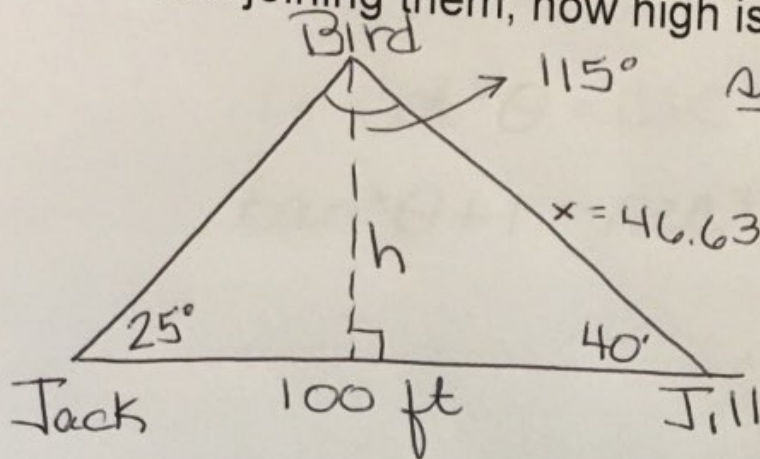 joining them, how high is
Bird
115°
x = 46.63
h
25°
40°
Jack
100 ft
Jill